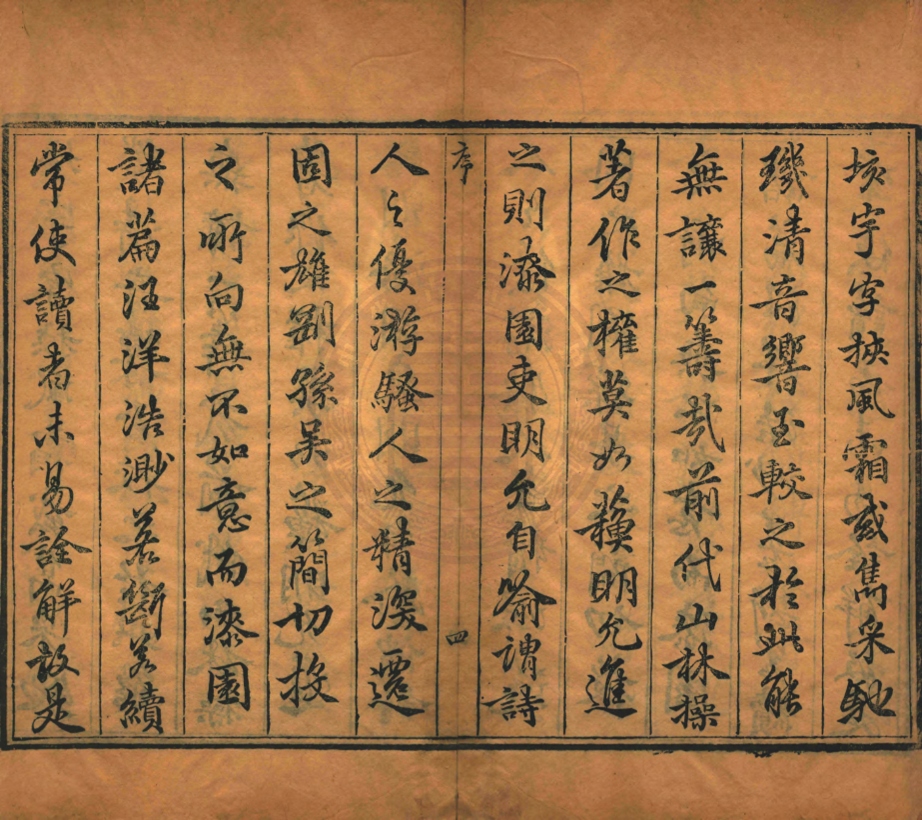 垓宇字挾風霜或雋采馳
璣清音響玉較之於此能
無讓一籌哉前代山林操
著作之權莫如蘓明允進
之則漆園吏明允自喻謂詩
序 四
人之優游騷人之精深遷
固之雄剛孫吳之簡切投
之所向無不如意而漆園
諸篇汪洋浩渺若斷若續
常使讀者未易詮解故是